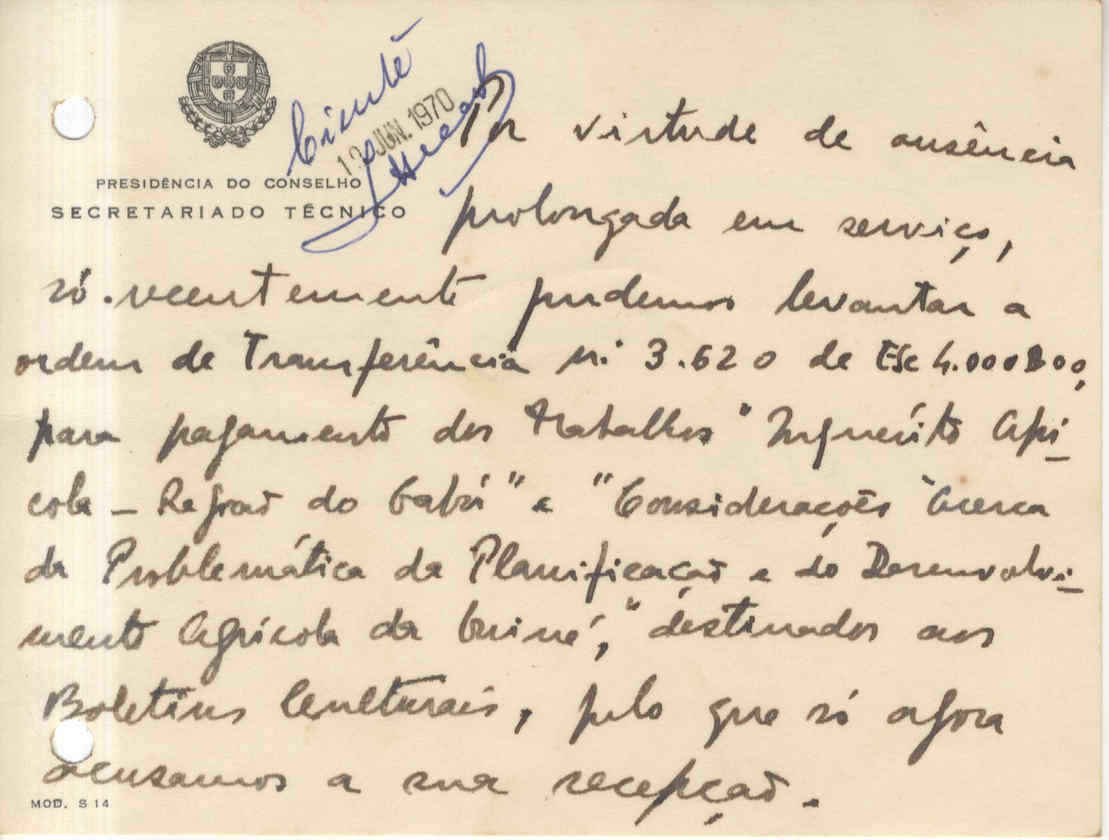 Ciente
19 JUN. 1970
PRESIDÊNCIA DO CONSELHO
SECRETARIADO TÉCNICO
Por virtude de ausência
prolongada em serviço,
só recentemente pudemos levantar a
ordem de Transferência n.º 3.620 de Esc 4.000$00,
para pagamento dos trabalhos "Inquérito Apí-
cola – Região do Gabú" e "Considerações Acerca
da Problemática da Planificação e do Desenvolvi-
mento Agrícola da Guiné," destinados aos
Boletins Culturais, pelo que só agora
acusamos a sua recepção.
MOD. S 14